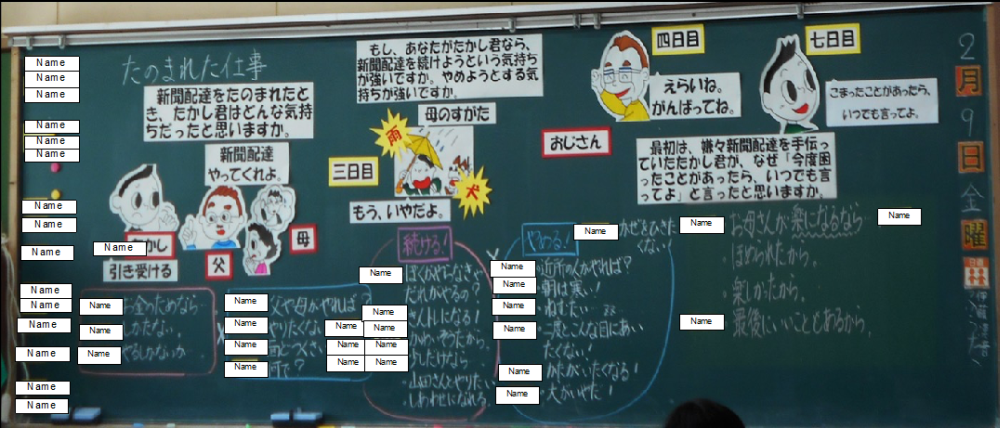 たのまれた仕事
新聞配達をたのまれたと
き、たかし君はどんな気持
ちだったと思いますか。
新聞配達
やってくれよ。
父
母
引き受ける
お金のためなら
しかたない
やるしかないか
父や母がやれば?
やりたくない
もし、あなたがたかし君なら、
新聞配達を続けようという気持ち
が強いですか。やめようとする気
持ちが強いですか。
母のすがた
雨
犬
三日目
もう、いやだよ。
続ける!
だれがやるの?
・山田さんとやりたい
・しあわせになれる。
やめる!
かぜをひきた
くない!
・近所の人がやれば?
・朝は寒い!
・ねむたい
・二度とこんな目にあい
たくない!
・犬がいやだ!
おじさん
四日目
えらいね。
がんばってね。
七日目
こまったことがあったら、
いつでも言ってよ。
最初は、嫌々新聞配達を手伝っ
ていたたかし君が、なぜ「今度困
ったことがあったら、いつでも言
ってよ」と言ったと思いますか。
・お母さんが楽になるなら
・ほめられたから。
・楽しかったから
・最後にいいことあるから。
2
月
9
日
金
曜
日直
Name
Name
Name
Name
Name
Name
Name
Name
Name
Name
Name
Name
Name
Name
Name
Name
Name
Name
Name
Name
Name
Name
Name
Name
Name
Name
Name
Name
Name
Name
Name
Name
Name
Name
Name
Name
Name
Name
Name
Name
Name